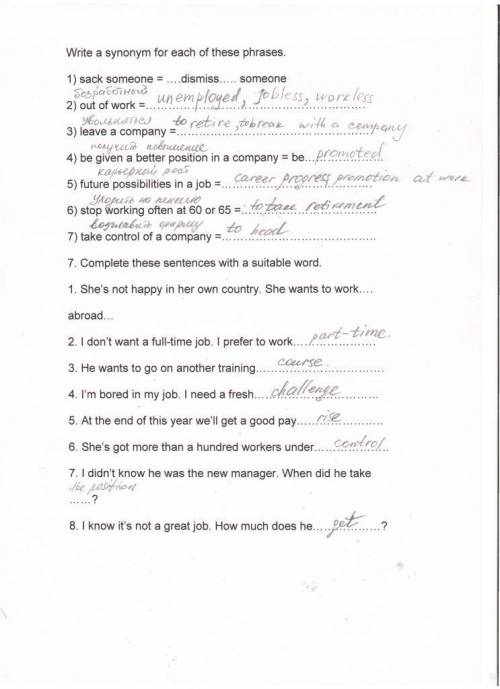 Write a synonym for each of these phrases.
1) sack someone = ....dismiss..... someone
безработный
2) out of work = unemployed, jobless, workless
увольняться
3) leave a company = to retire, to break with a company
получить повышение
4) be given a better position in a company = be promoted
карьерный рост
5) future possibilities in a job = career progress, promotion at work
уходить на пенсию
6) stop working often at 60 or 65 = to take retirement
возглавить фирму
7) take control of a company = to head
7. Complete these sentences with a suitable word.
1. She's not happy in her own country. She wants to work....
abroad...
2. I don't want a full-time job. I prefer to work.... part-time.
3. He wants to go on another training... course.
4. I'm bored in my job. I need a fresh... challenge
5. At the end of this year we'll get a good pay... rise
6. She's got more than a hundred workers under... control
7. I didn't know he was the new manager. When did he take
the position
......?
8. I know it's not a great job. How much does he.... get ....?